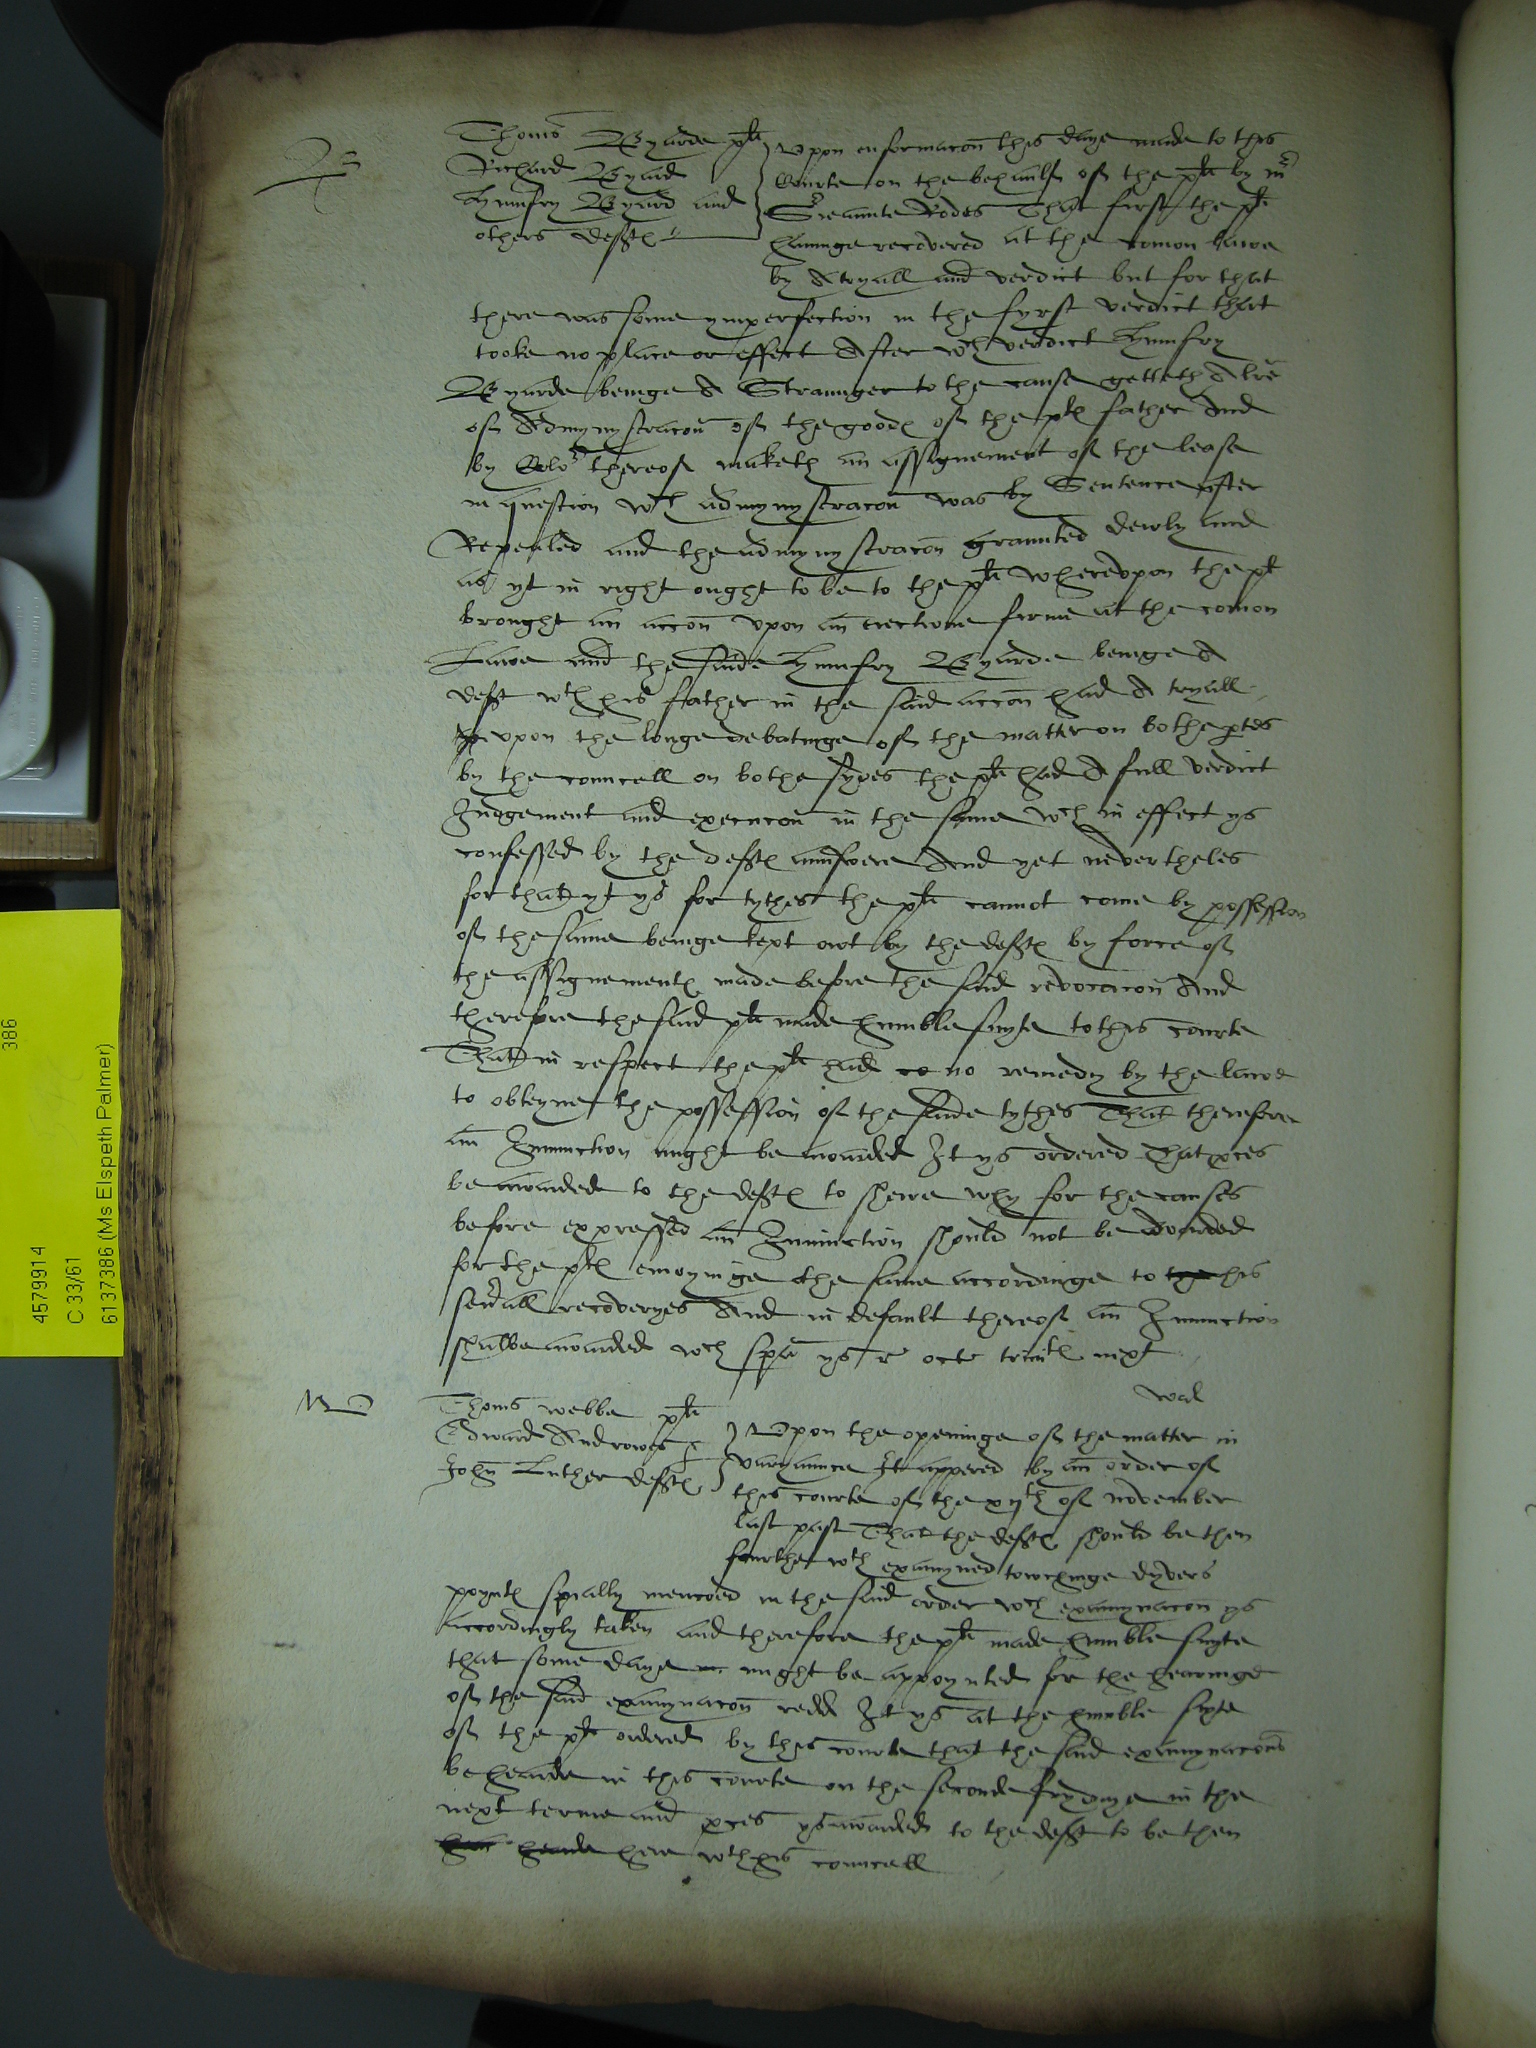 Thoms Byarde plt
Richard Byard
Humfry Byard and
others defts
Upon informacon this daye made to this
Courte on the behaulf of the plt by mr
Sieaunte Rodes That first the plt
havinge recovered at the comon lawe
by A tryall and verdict but for that
there was some ymperfection in the fyrst verdict that
tooke no place or effect After wch verdict Humfry
Byarde beinge A Straunger to the cause getteth A lre
of Admynystracon of the goods of the plts father And
by Color thereof maketh an assignement of the lease
in question wch admynystracon was by Sentence after
Repealed and the admynystracon graunted dewly and
as yt in right ought to be to the plt whereupon the plt
brought an accon upon an eiectione firme at the comon
Lawe and the saide Humfry Byarde beinge A
deft wth his father in the said accon had A tryall
upon the longe debatinge of the matter on bothe ptes
by the councell on bothe sydes the plt had A full verdict
Iudgement and execucon in the same wch in effect ys
confessed by the defts aunswere And yet nevertheles
for that yt ys for tythes the plt cannot come by possession
of the same beinge kept owt by the defts by force of
the assignements made before the said revocacon And
therefore the said plt made humble suyte to this courte
That in respect the plt had co no remedy by the lawe
to obteyne the possession of the saide tythes That therefore
an Iniunction might be awarded It ys ordered That pces
be awarded to the defts to shewe why for the causes
before expressed an Iniunction should not be awarded
for the plts enioyninge the same accordinge to the his
severall recoveryes And in default thereof an Iniunction
shalbe awarded wch spa ys r octe trinits next
Wal
Thoms Webbe plt
Edward Androwes
John Luther defts
Upon the openinge of the matter in
varyaunce It appered by an order of
this courte of the xijth of november
last past That the defts should be then
fourthe wth examyned towchinge dyvers
poynts spially mencoed in the said order wch examynacon ys
accordingly taken and therefore the plt made humble suyte
that some daye m might be appoynted for the hearinge
of the said examynacon redd It ys at the humble suyte
of the plt ordered by this courte that the said examynacons
be hearde in this courte on the seconde frydaye in the
next terme and pces ys awarded to the deft to be then
hearde here wth his councell
4579914
386
C 33/61
6137386 (Ms Elspeth Palmer)